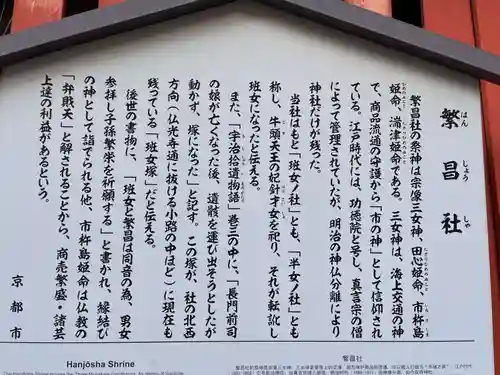 繁昌社
はんじょうしゃ
繁昌社の祭神は宗像三女神、田心姫命、市杵島
姫命、湍津姫命である。三女神は、海上交通の神
で、商品流通の守護から「市の神」として信仰され
ている。江戸時代には、功徳院と号し、真言宗の僧
によって管理されていたが、明治の神仏分離により
神社だけが残った。
当社はもと「班女ノ社」とも、「半女ノ社」とも
称し、牛頭天王の妃針才女を祀り、それが転訛し
班女になったと伝える。
また、「宇治拾遺物語」巻三の中に、「長門前司
の娘が亡くなった後、遺骸を運び出そうとしたが
動かず、塚になった」と記す。この塚が、社の北西
方向（仏光寺通に抜ける小路の中ほど）に現在も
残っている「班女塚」だと伝える。
後世の書物に、「班女と繁昌は同音の為、男女
参拝し子孫繁栄を祈願する」と書かれ、縁結び
の神として詣でられる他、市杵島姫命は仏教の
「弁財天」と解されることから、商売繁盛・諸芸
上達の利益があるという。
京都市
Hanjōsha Shrine
繁昌社